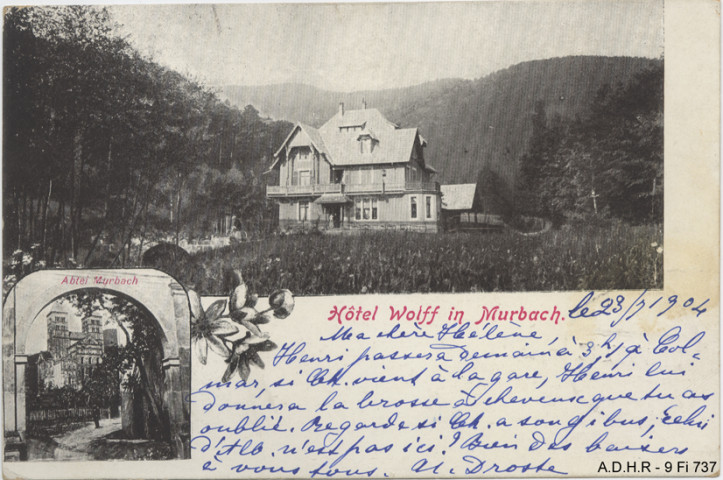 Abtei Murbach
Hôtel Wolff in Murbach.
le 23/7 1904
Ma chère Hélène,
Henri passera demain à 3 h ½ à Col-
mar, si Ch. vient à la gare, Henri lui
donnera la brosse à cheveux que tu as
oublié. Regarde si Ch. a son gibus; celui
d'Alb. n'est pas ici? Bien des baisers
à vous tous. Droste
A.D.H.R - 9 Fi 737